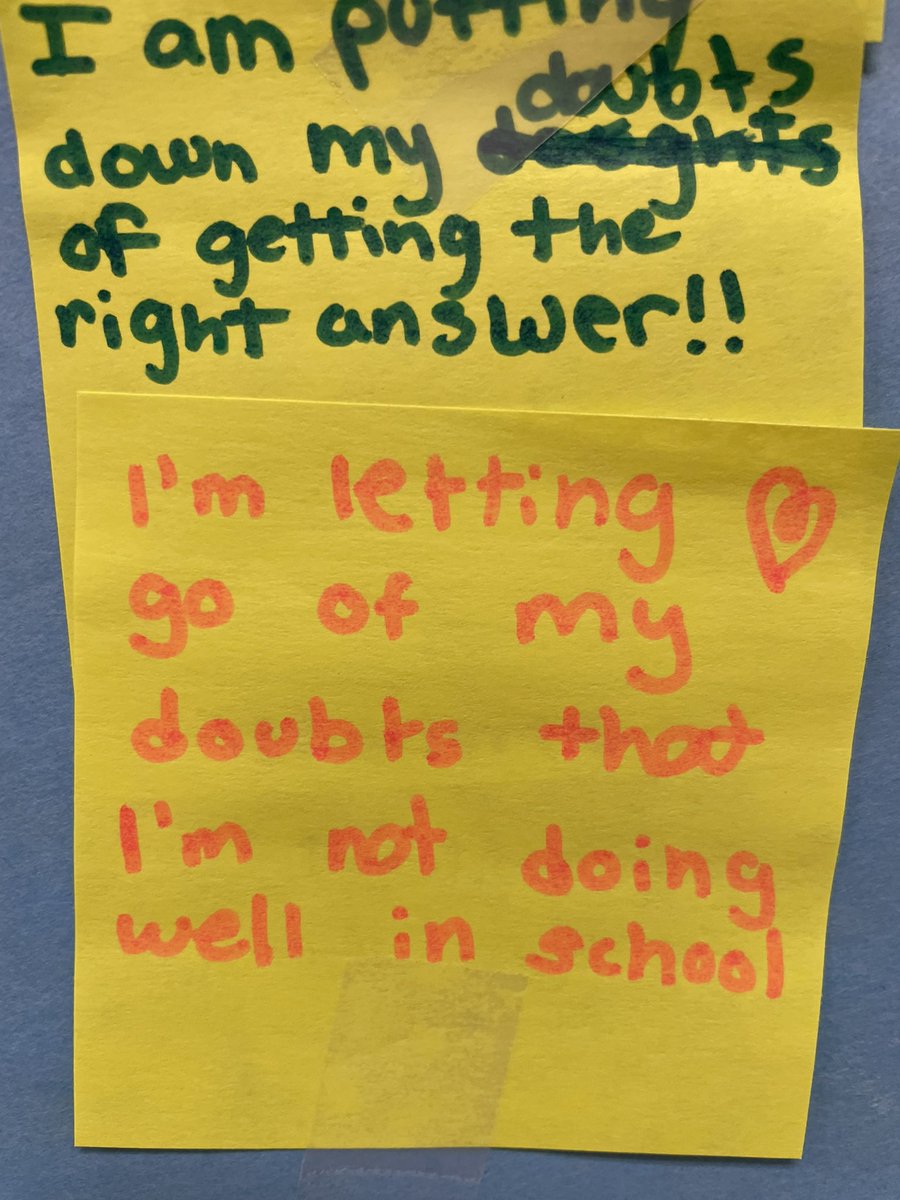 I am putting
doubts
down my doughts
of getting the
right answer!!
I'm letting
go of my
doubts that
I'm not doing
well in school